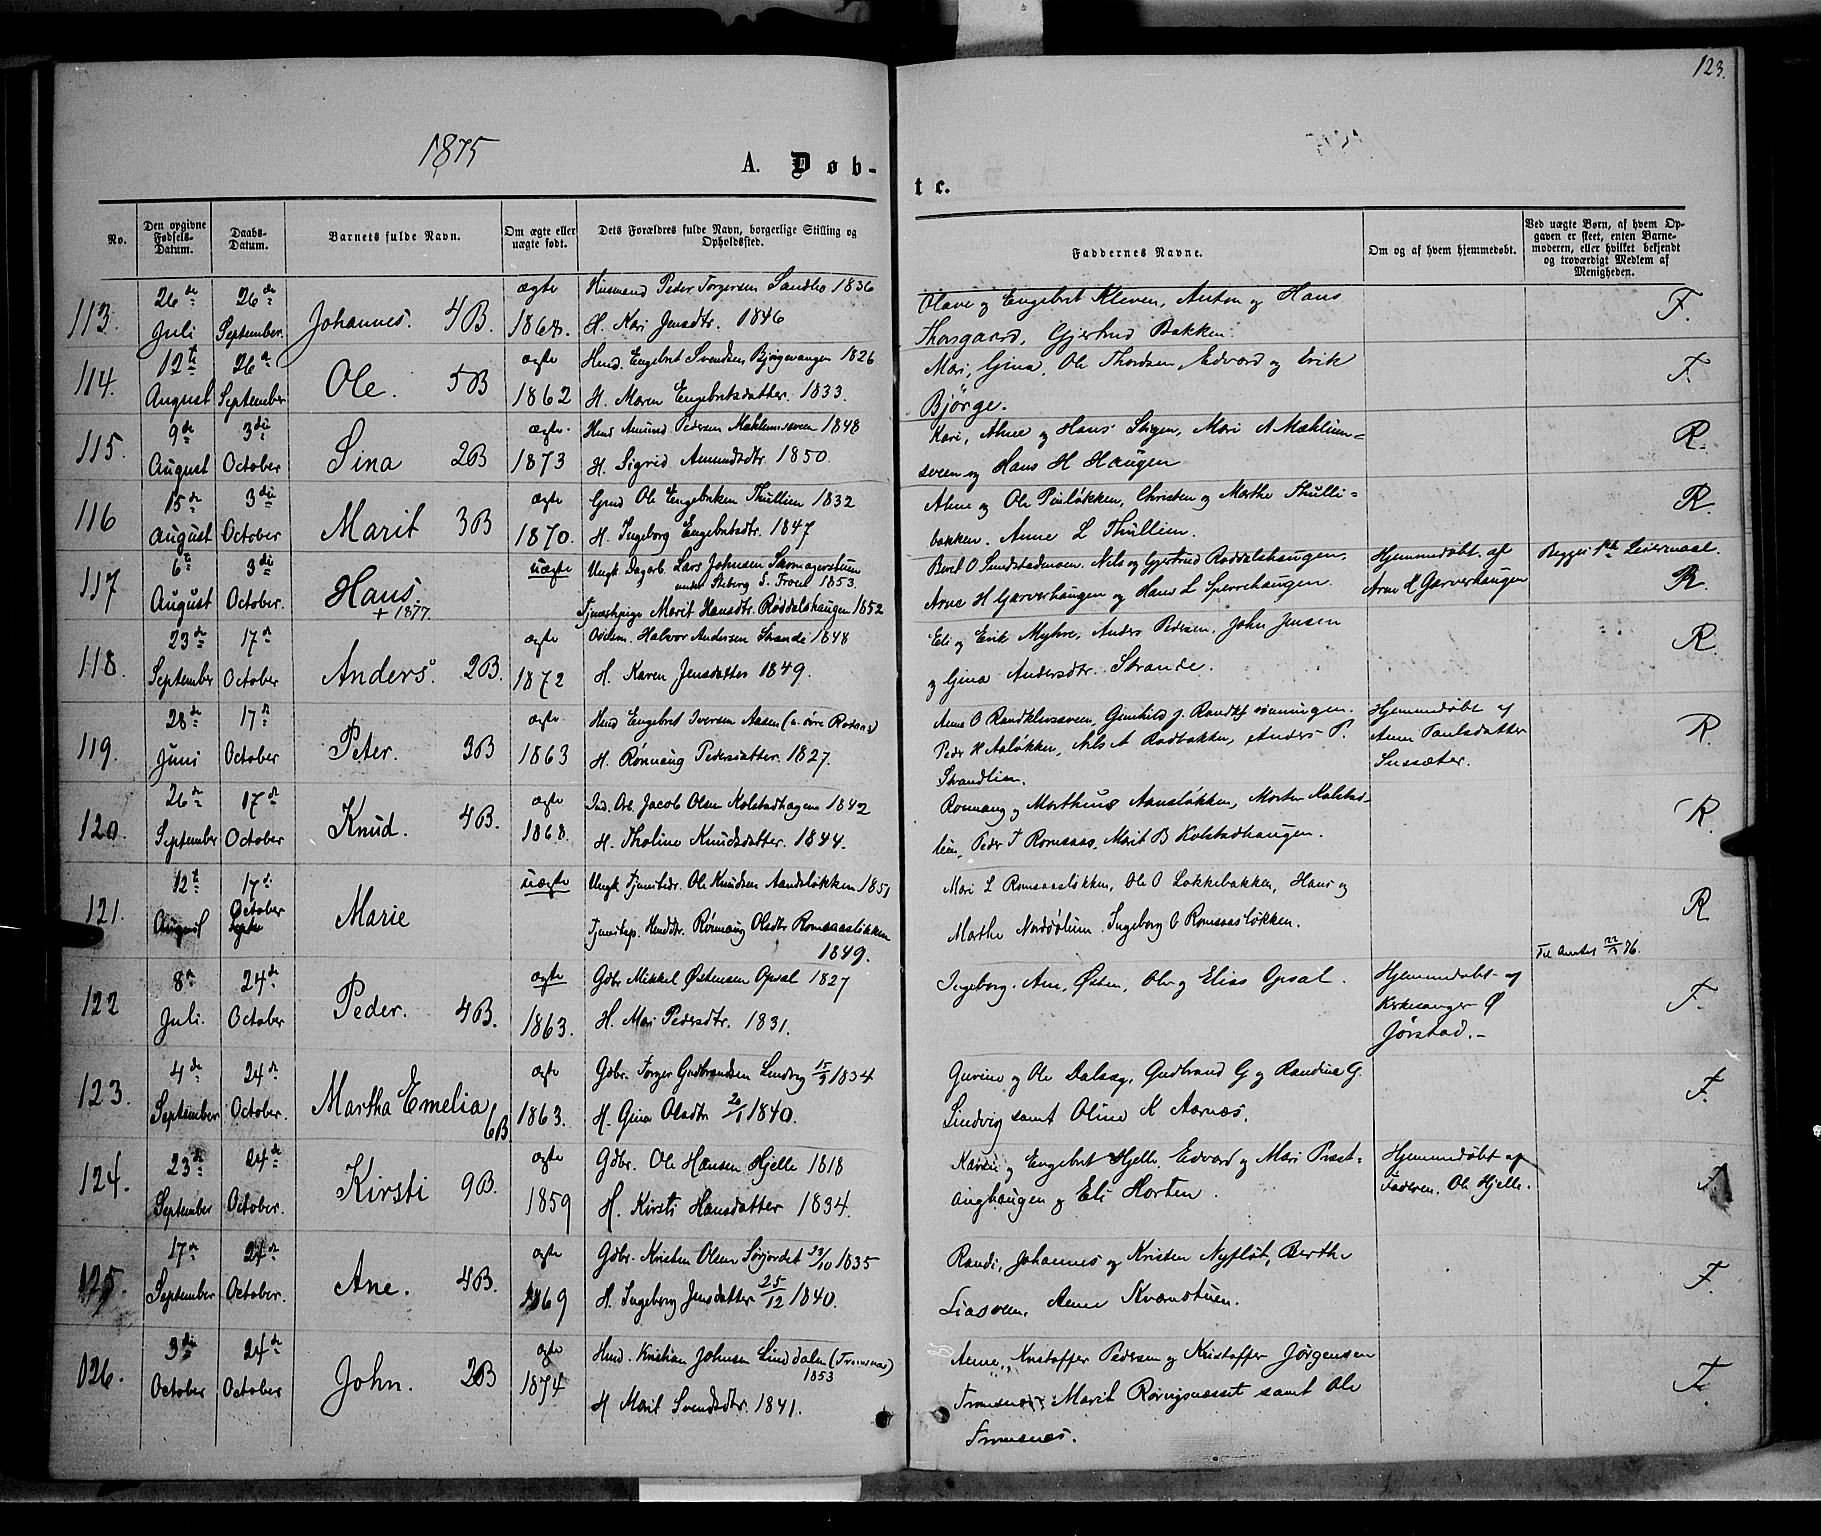 123.
1875
A. Døb-
te.
No.
Den opgivne Fødsels-Datum.
Daabs-Datum.
Barnets fulde Navn.
Om ægte eller uægte født.
Dets Forældres fulde Navn, borgerlige Stilling og Opholdssted.
Faddernes Navne.
Om og af hvem hjemmedøbt.
Ved uægte Børn, af hvem Opgaven er skeet, enten Barnemoderen, eller hvilket bekjendt og troværdigt Medlem af Menigheden.
113. 26de Juli 26de September. Johannes. 4B. ægte 1868.
Husmand Peder Torgersen Sandbo 1836
H. Kari Jensdtr. 1846
Olave og Engebret Kleven, Anton og Hans
Thorsgaard, Gjertrud Bakken.
F.
114. 12te August 26de September Ole. 5B ægte 1862
Husmd. Engebret Svendsen Bjørgevangen 1826
H. Maren Engebretsdatter. 1833.
Mari, Gina, Ole Thordsen, Edvard og Erik
Bjørge.
F.
115. 9de August 3die October Sina 2B ægte. 1873
Husmd Amund Pedersen Mæhlumsveen 1848
H. Sigrid Amundsdtr. 1850.
Kari, Anne og Hans Skogen, Mari A Mæhlum=
sveen og Hans H Haugen
R.
116 15de August 3die October Marit 3B ægte 1870.
Gmd Ole Engebretsen Thullien 1832
H. Ingeborg Engebretsdtr. 1847
Anne og Ole Pinløkken, Christen og Marthe Thulli=
bakken. Anne L Thullien.
R.
117 6te August 3die October. Hans. + 1877. uægte
Ungk Dagarb. Lars Johnsen Skomagerstuen
under Steberg S. Froen 1853.
Tjenestepige Marit Hansdtr. Røddalshaugen 1852
Beret O Sundstadmoen. Nels og Gjertrud Røddalshaugen,
Arne H Garverhaugen og Hans L Sperrehaugen.
Hjemmedøbt af
Arne H Garverhaugen
Begges 1ste Leiermaal.
R.
118. 23de September 17de October Anders. 2B. ægte 1872
Halvor Andersen Strande 1848
H. Karen Jensdatter 1849.
Eli og Erik Myhre, Anders Pedersen, John Jensen
og Gina Andersdtr. Strande.
R.
119. 28de Juni 17de October Peter. 3B ægte 1863
Husmd Engebret Iversen Aasen
H. Rønnaug Pedersdatter. 1827.
Anne O Randklevsveen, Gunhild J. Randkl.rønningen.
Peder H Aaløkken, Nils A Rødbakken, Anders P.
Strandlien.
Hjemmedøbt af
Anne Paulsdatter
R.
120. 26de September 17de October Knud. 4B. ægte 1868.
Ind. Arb. Jacob Olsen Kolstadhagen 1842
H. Tholine Knudsdatter. 1844.
Rønnaug og Morthinus Aansløkken, Morten Kolstad=
lien, Peder T Romsaas, Marit B Kolstadhaugen.
R.
121. 12te August 17de October Marie uægte
Ungk. Tjenestedr. Ole Knudsen Aandsløkken 1851
Tjenestep. Rønnaug Olsdtr Romsaasløkken
1849.
Mari L Romsaasløkken, Ole O Løkkebakken, Hans og
Marthe Norddølum. Ingeborg O Romsaasløkken.
R
122 8de Juli. 24de October Peder. 4B. ægte 1863.
Gdbr Mikkel Østensen Opsal 1827
H. Mari Pedersdtr. 1831.
Ingeborg. Ane, Østen, Ole og Elias Opsal.
Hjemmedøbt af
Kirkesanger Ø
Jørstad.-
F.
123. 4de September 24de October. Martha Emelia 6B ægte 1863.
Gdbr. Torger Gudbrandsen Lindvig 15/9 1834
H. Gina Olsdtr 20/1 1840.
Gurine og Ole Dalseg, Gudbrand G og Randina G.
Lindvig samt Oline K Aarnæs.
F.
124. 23de September 24de October. Kirsti 9B. ægte 1859
Gdbr. Ole Hansen Hjelle 1818
H. Kirsti Hansdatter 1834.
Karen og Engebret Hjelle, Edvard og Mari Præst=
anghaugen og Eli Horten.
Hjemmedøbt af
Faderen. Ole Hjelle.
F
125. 17de September 24de October. Ane. 4B. ægte 1869
Gdbr. Kristen Olsen Sørjordet 23/10 1835
H. Ingeborg Jensdatter 25/12 1840.
Randi, Johannes og Kristen Nyfløt, Berthe
Liasveen, Anne Kvandstuen.
F.
026. 3die October 24de October John. 2B ægte 1874
Husmd. Kristian Johnsen Linddalen (Tromsnes)
1853
H Marit Svendsdtr. 1841.
Anne, Kristoffer Pedersen og Kristoffer Jørgensen
Tromsnes, Marit Røringsnesset samt Ole
Tromsnæs.
F.